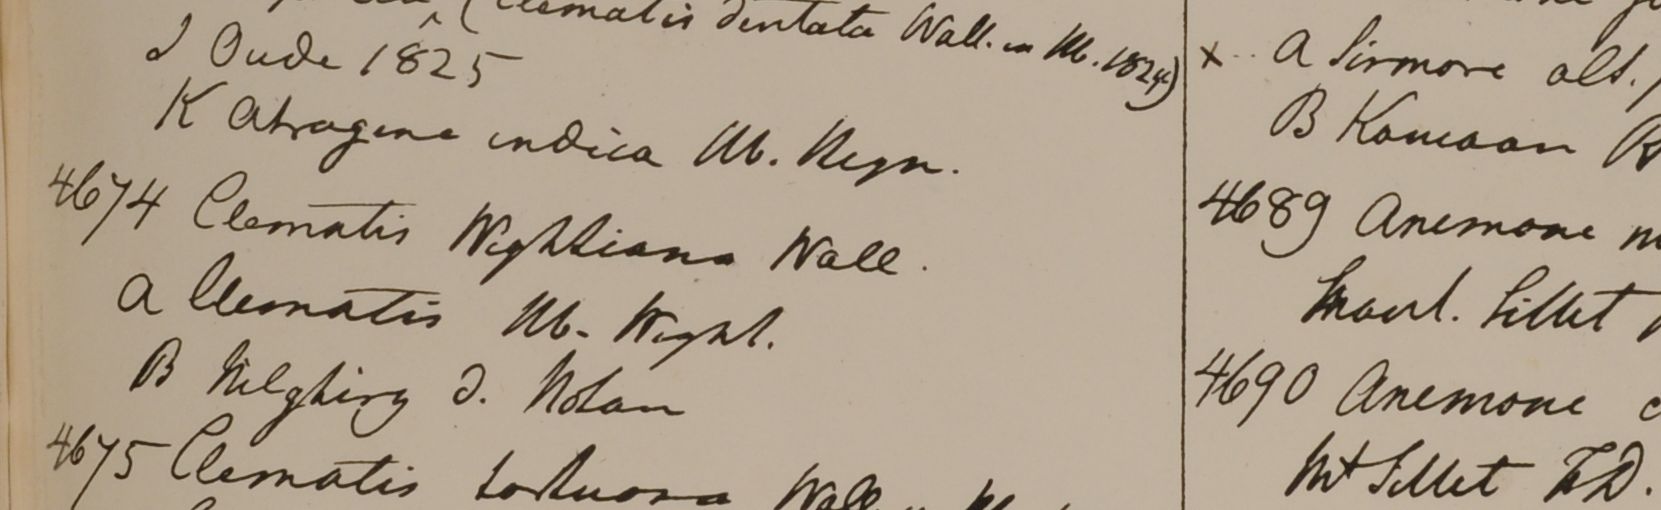 (Clematis dentata Wall. in Hb. 1824)
J Oude 1825
K Atragene indica Hb. Heyn.
4674 Clematis Wightiana Wall.
a Clematis Hb. Wight.
B Nilghiry D. Notan
4675 Clematis tortuosa Wall.
x a Sirmore alt.
B Kamaon
4689 Anemone
Maul. Sillet
4690 Anemone
Mt Sillet F.D.